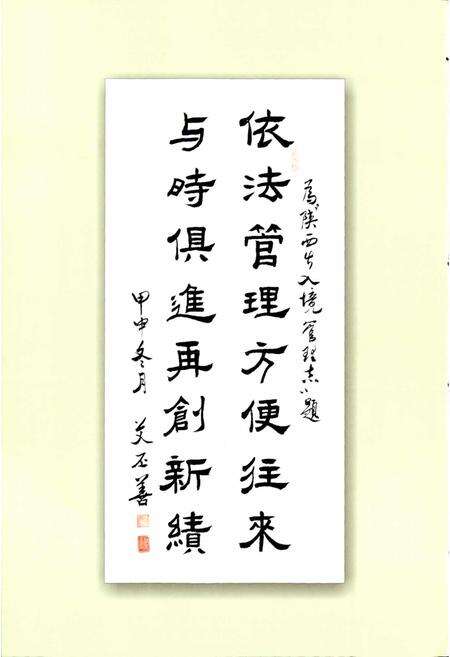 为陕西出入境管理志题
依法管理方便往來
与時俱進再創新績
甲申冬月
艾丕善